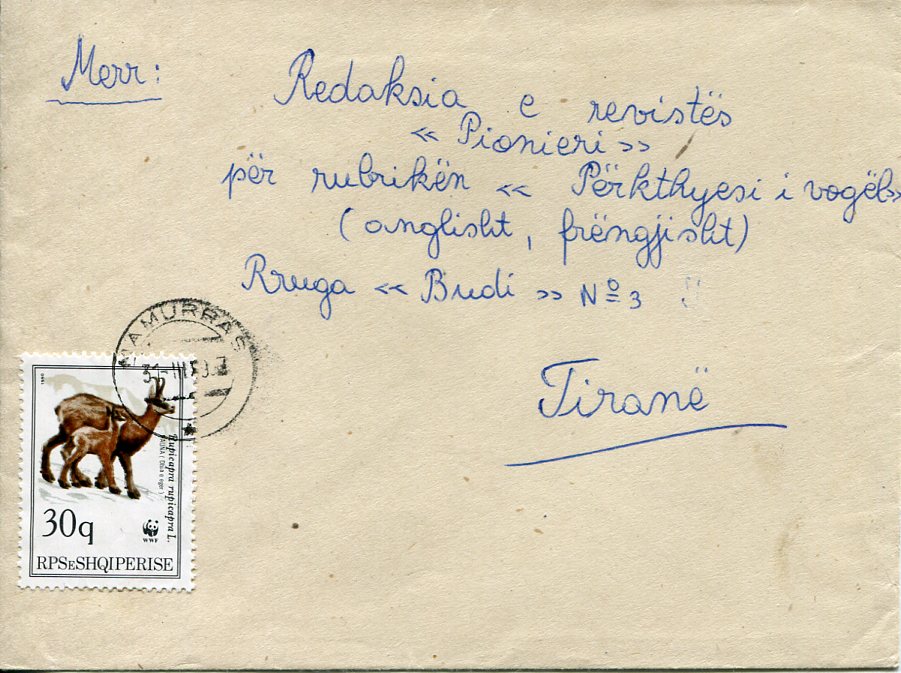 Merr:
Redaksia e revistës
« Pionieri »
për rubrikën « Përkthyesi i vogël»
(anglisht, frëngjisht)
Rruga « Budi » Nº 3
Tiranë
MAMURRAS
1990
Rupicapra rupicapra L.
FAUNA (Dhia e egër)
30q
WWF
RPSeSHQIPERISE